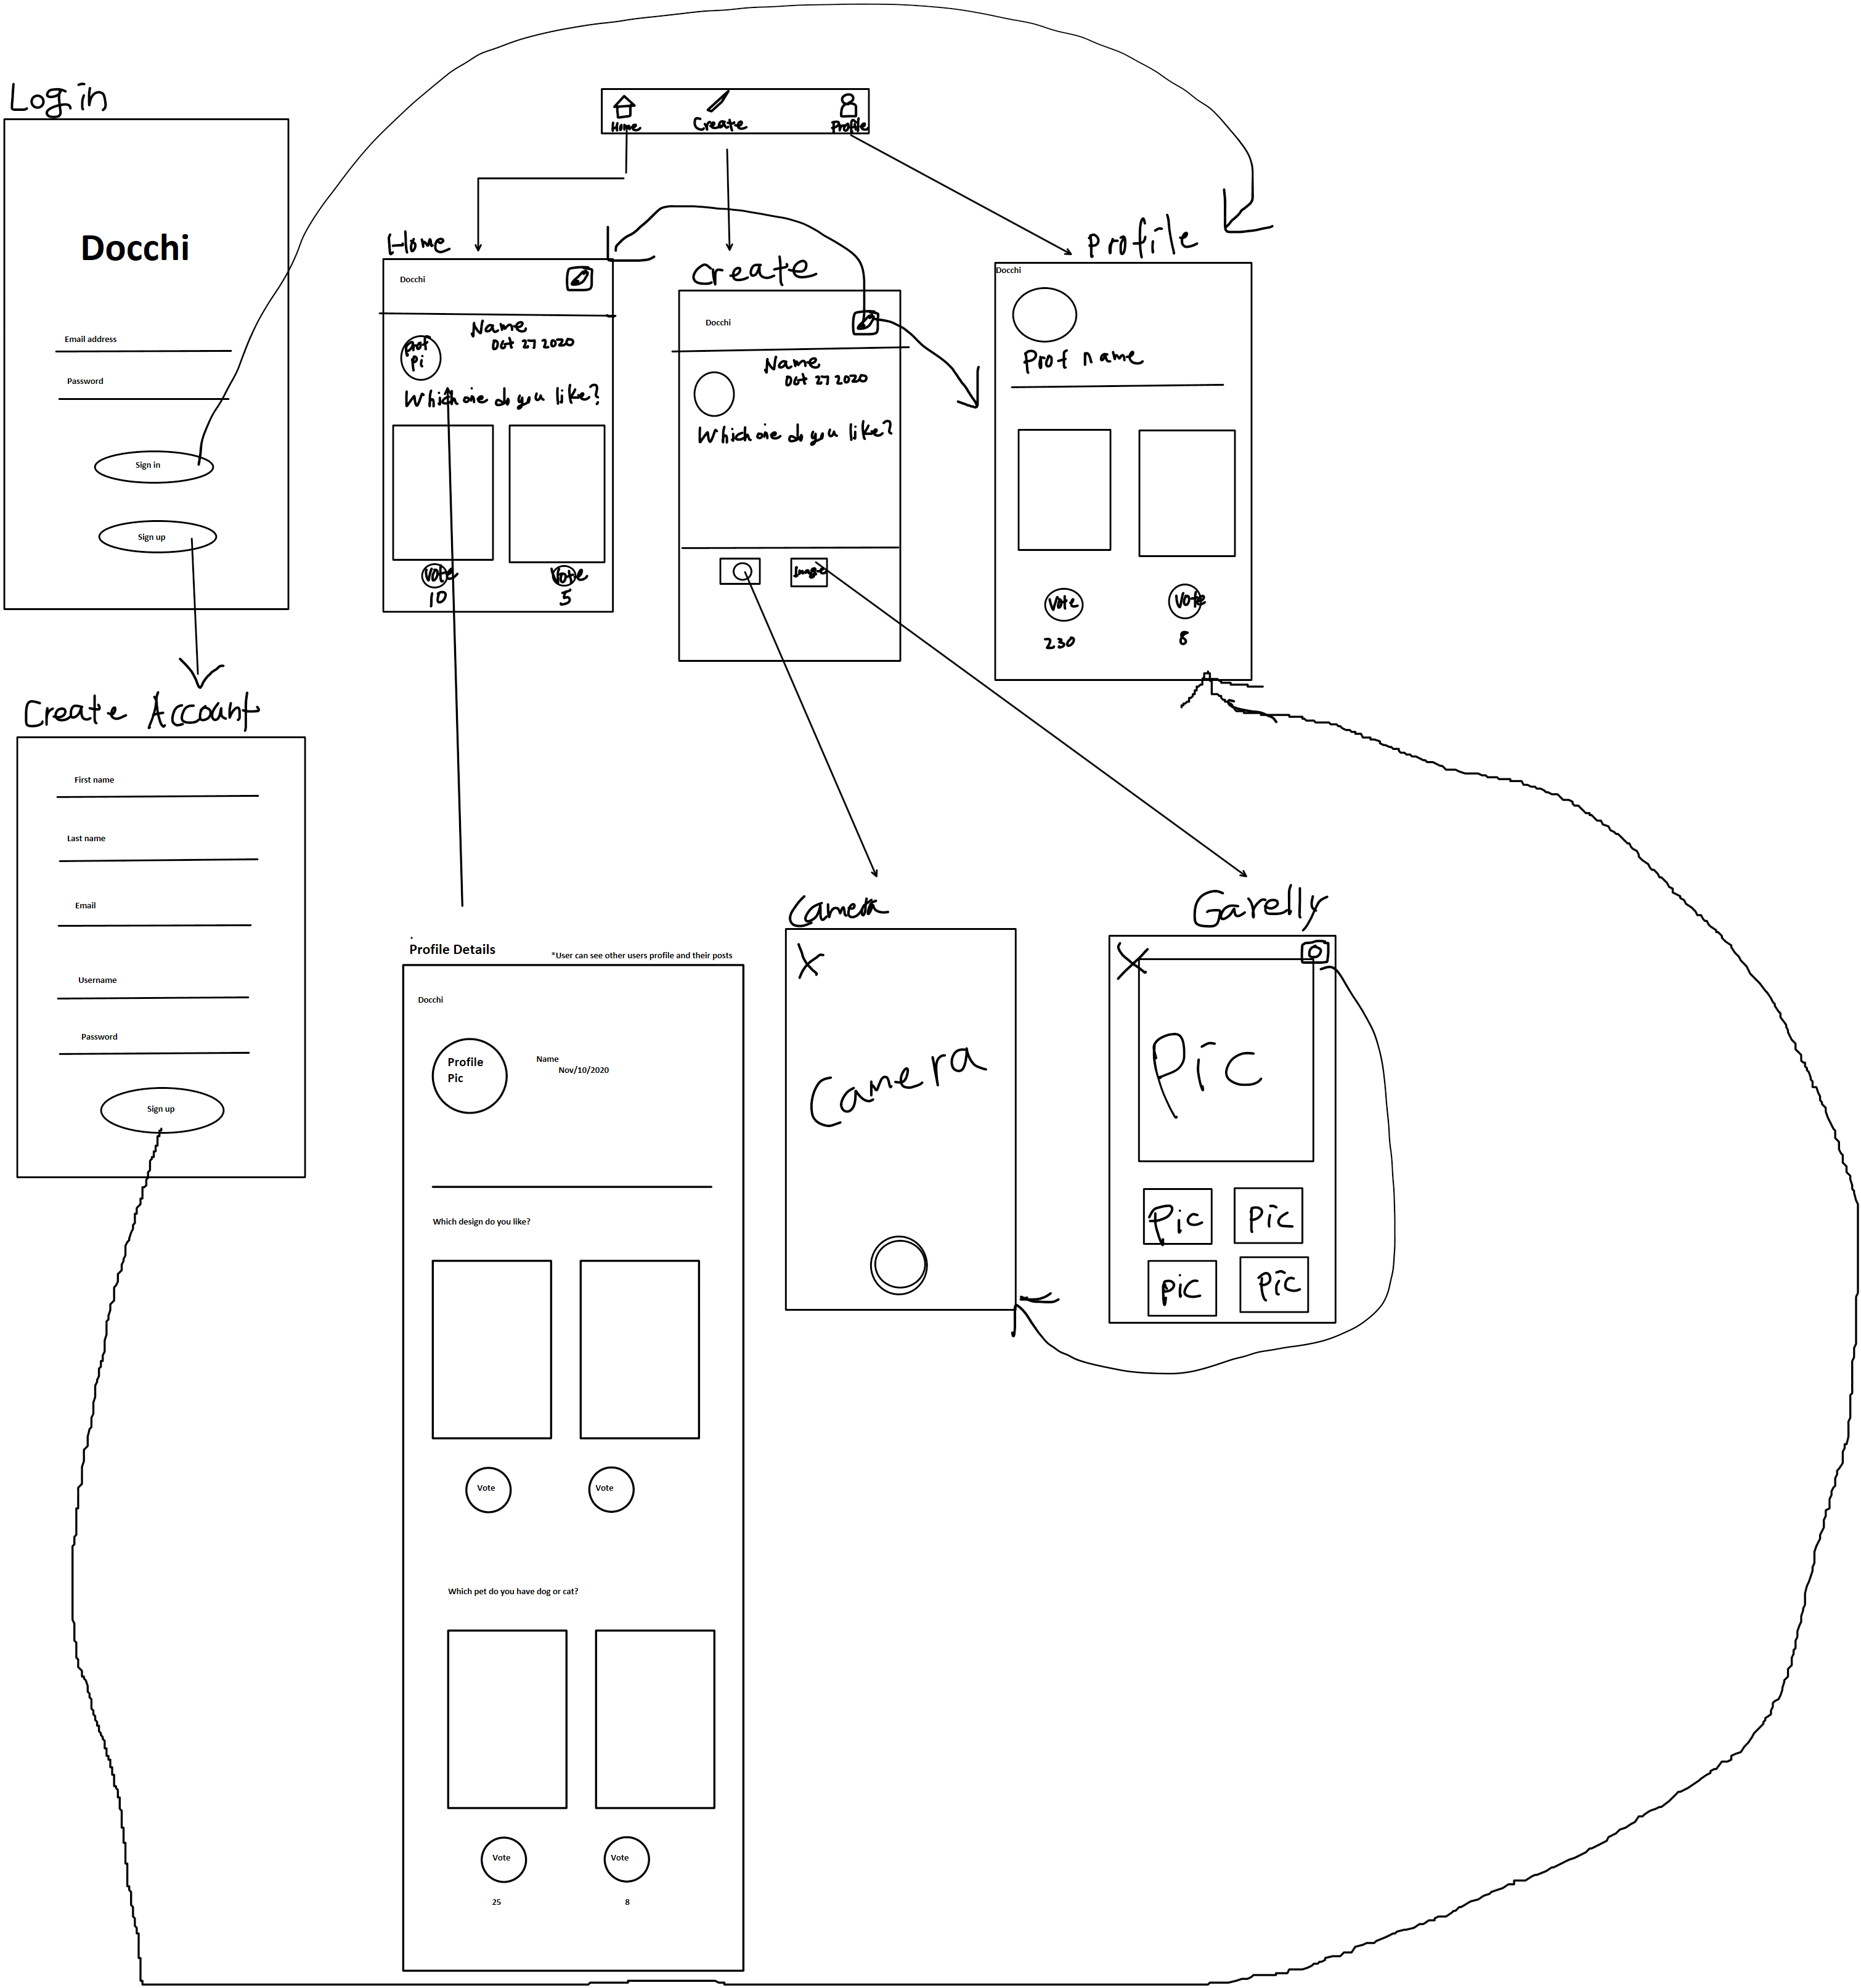 Login
Docchi
Email address
Password
Sign in
Sign up
Home
Create
Profile
Home
Docchi
Name
Oct 27 2020
Prof
Pi
Which one do you like?
Vote
Vote
10
5
Create
Docchi
Name
Oct 27 2020
Which one do you like?
Image
Profile
Docchi
Prof name
Vote
Vote
230
8
Create Account
First name
Last name
Email
Username
Password
Sign up
Profile Details
*User can see other users profile and their posts
Docchi
Profile
Pic
Name
Nov/10/2020
Which design do you like?
Vote
Vote
Which pet do you have dog or cat?
Vote
Vote
25
8
Camera
X
Camera
Garelly
X
Pic
Pic
Pic
Pic
Pic